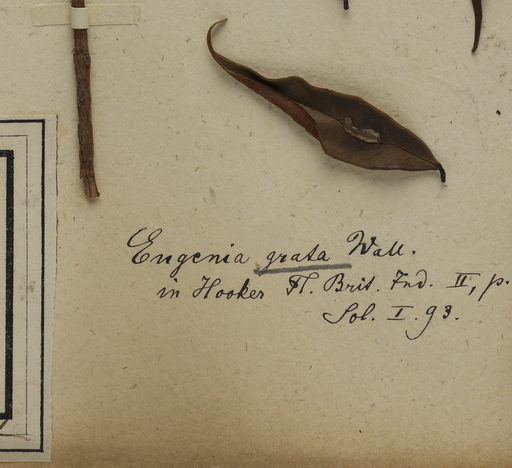 Eugenia grata Wall.
in Hooker Fl. Brit. Ind. II, p.
Sol. I. 93.